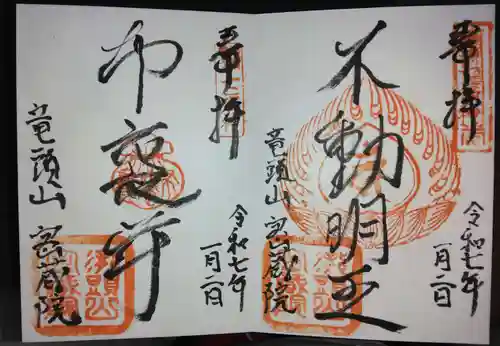 奉拝
不動明王
竜頭山 宝蔵院
令和七年
一月二日
奉拝
布袋尊
竜頭山 宝蔵院
令和七年
一月二日